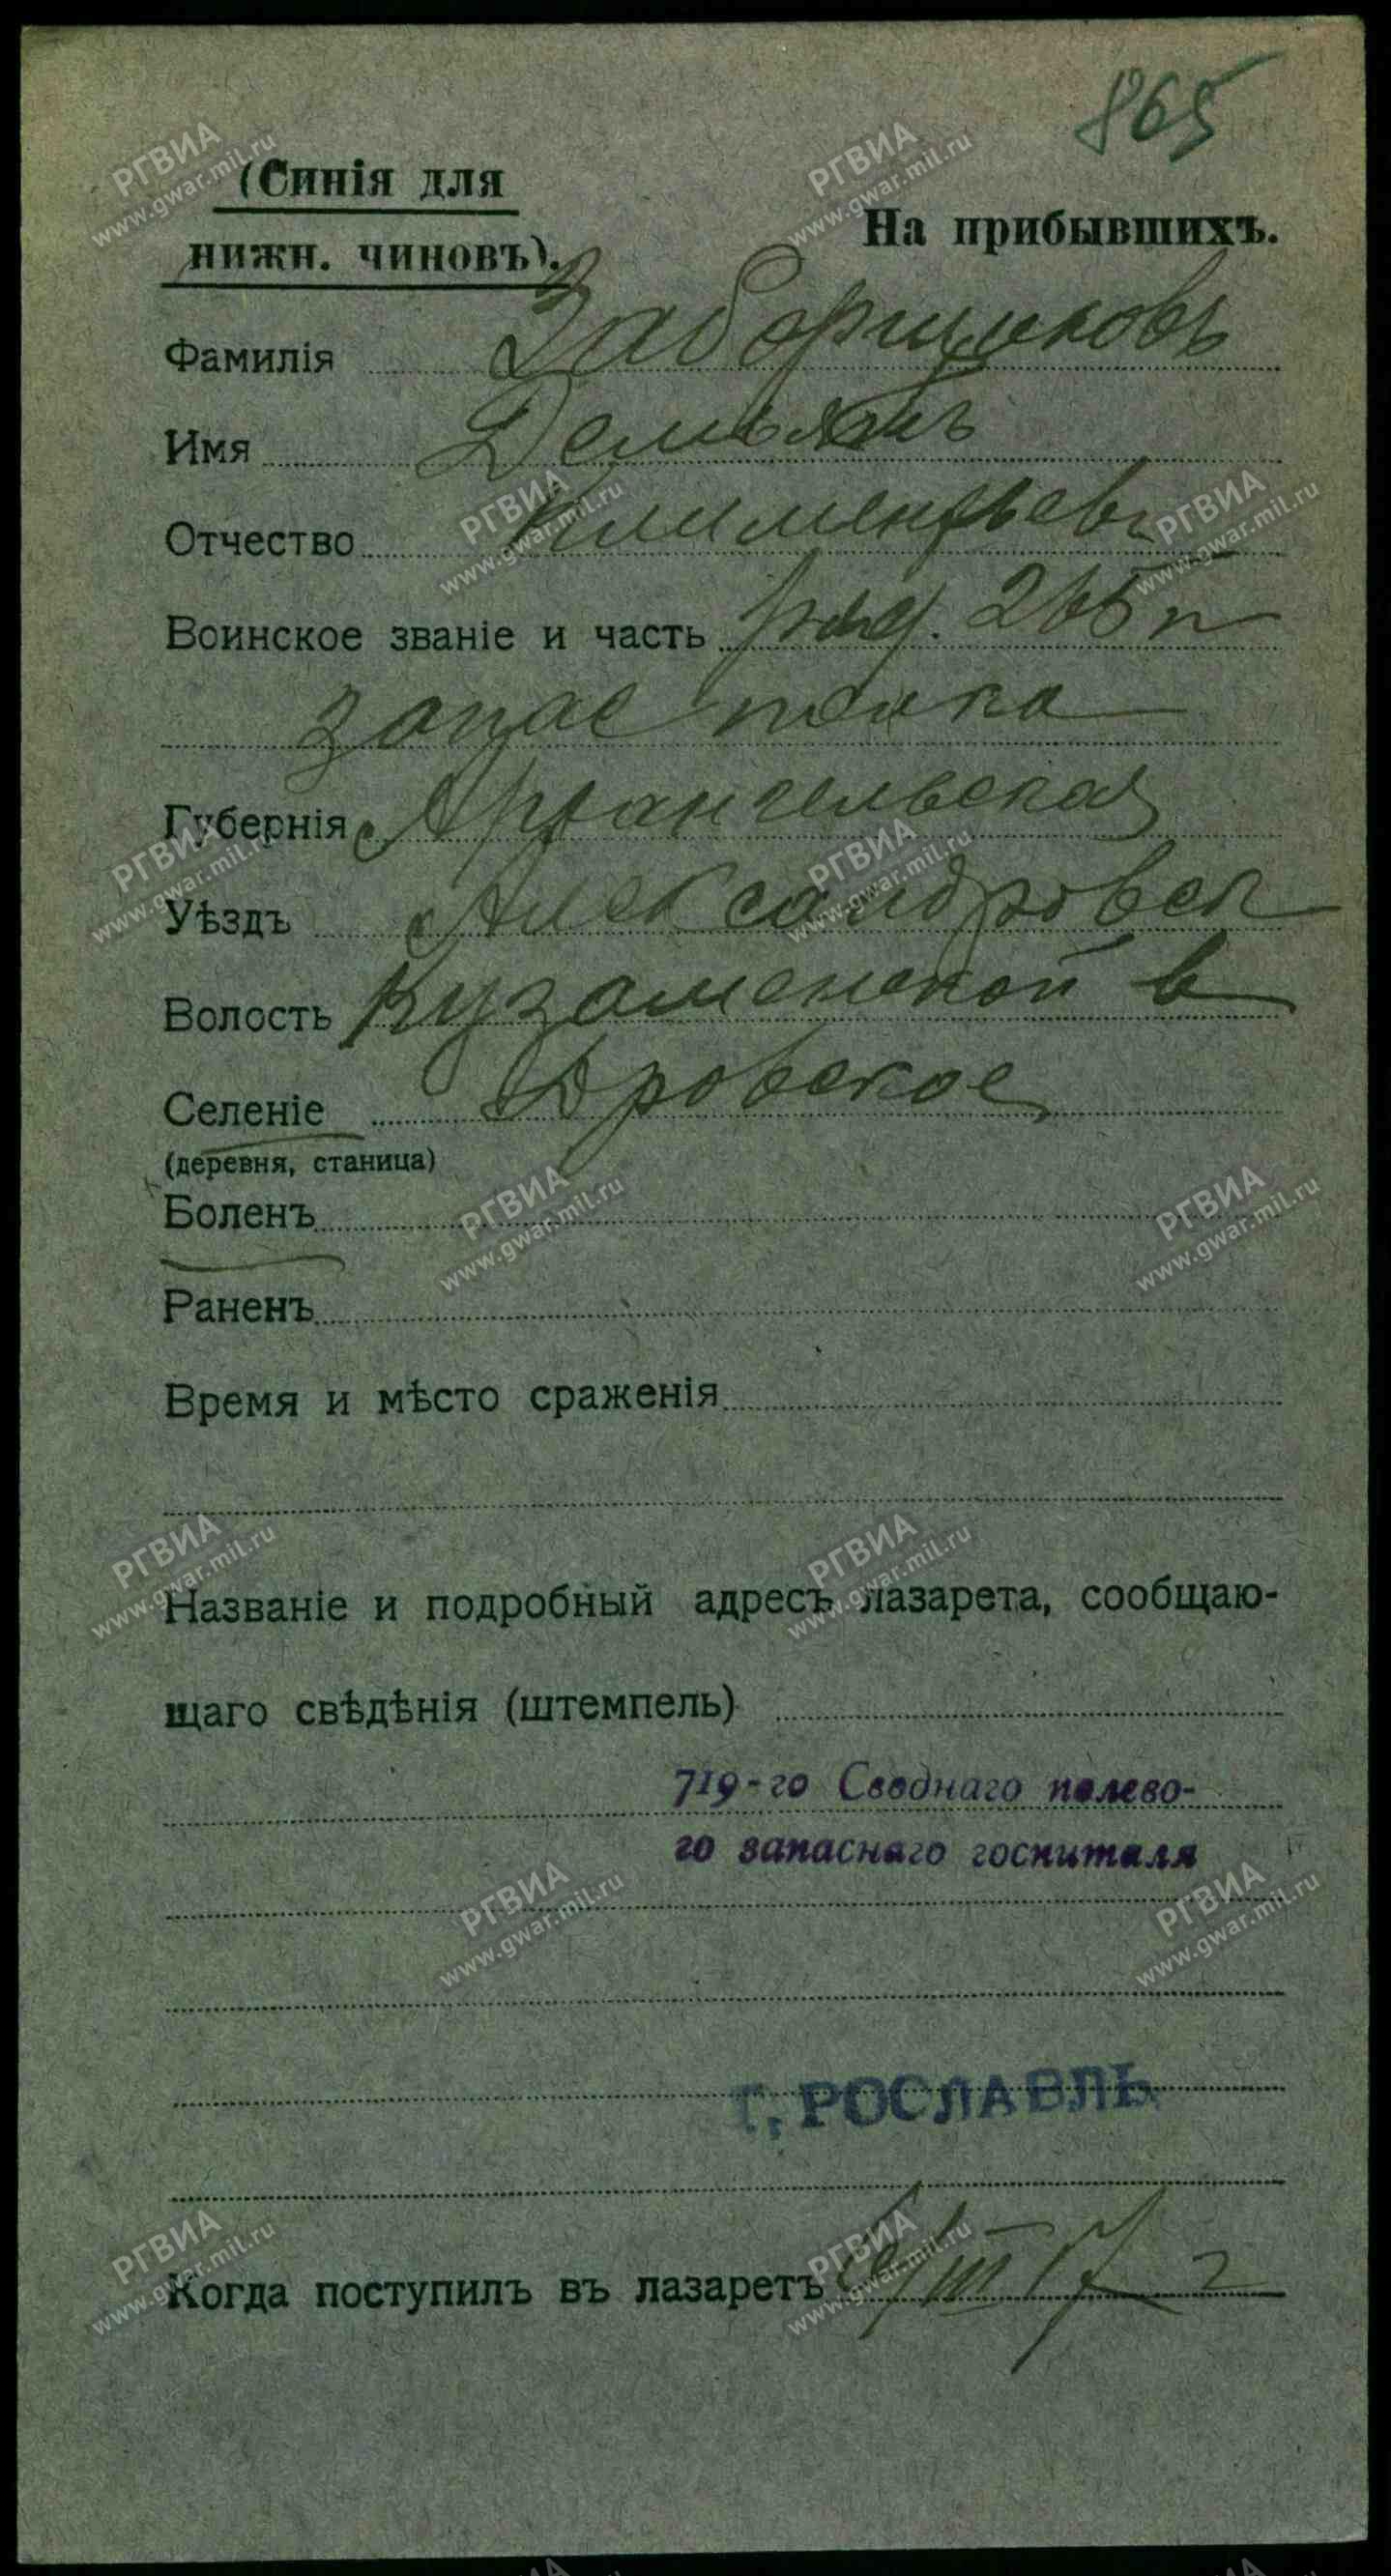 865
(Синія для
нижн. чиновъ).
На прибывшихъ.
Фамилія Заборщиковъ
Имя Демьянъ
Отчество Климентьев
Воинское званіе и часть ряд. 265 п
запас полка
Губернія Архангельская
Уѣздъ Александровск
Волость Кузаменской в
Селеніе
(деревня, станица)
Боленъ
Раненъ
Время и мѣсто сраженія
Названіе и подробный адресъ лазарета, сообщаю-
щаго свѣдѣнія (штемпель)
719-го Своднаго полево-
го запаснаго госпиталя
г. РОСЛАВЛЬ
Когда поступилъ въ лазаретъ 6/III 17 г
РГВИА
www.gwar.mil.ru